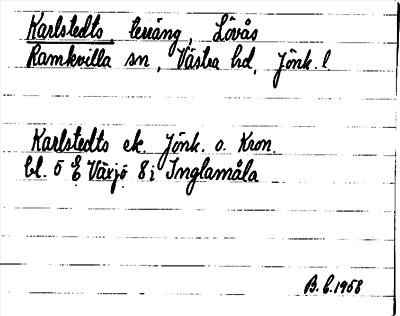 Karlstedts, terräng, Lövås
Ramkvilla sn, Västra hd, Jönk. l
Karlstedts ek. Jönk. o. Kron.
bl. ö E Växjö 8 i Inglamåla
B. E. 1958